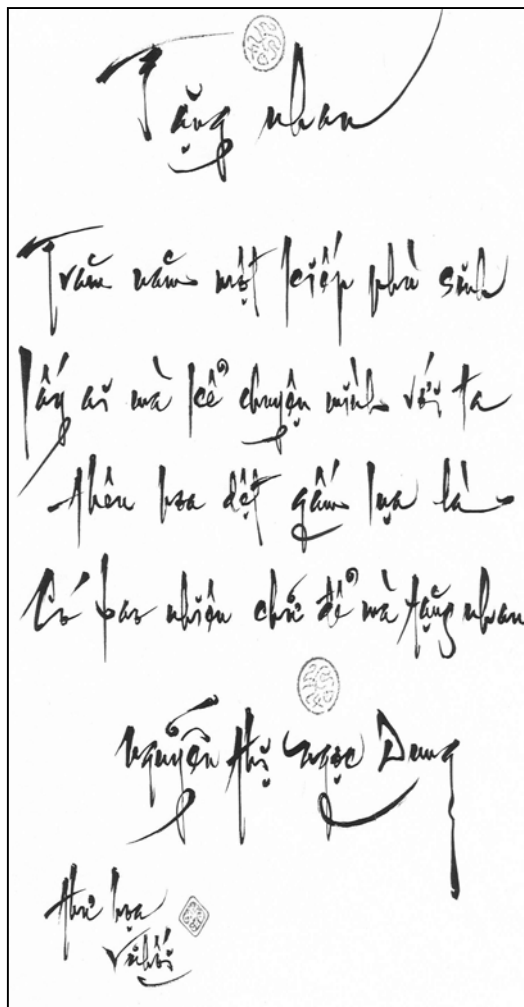 Tặng nhau
Trăm năm một kiếp phù sinh
lấy ai mà kể chuyện mình với ta
thêu hoa dệt gấm lụa là
Có bao nhiêu chữ để mà tặng nhau
Nguyễn Thị Ngọc Dung
thư họa
Vũ Hối